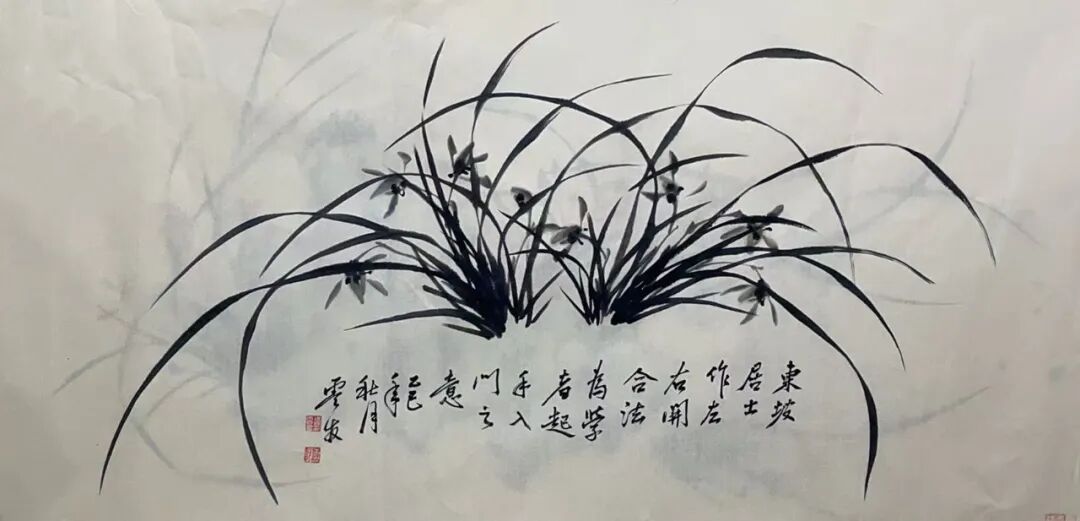 東坡
居士
作左
右開
合法
為學
者起
手入
門之
意
乙巳年
秋月
雲